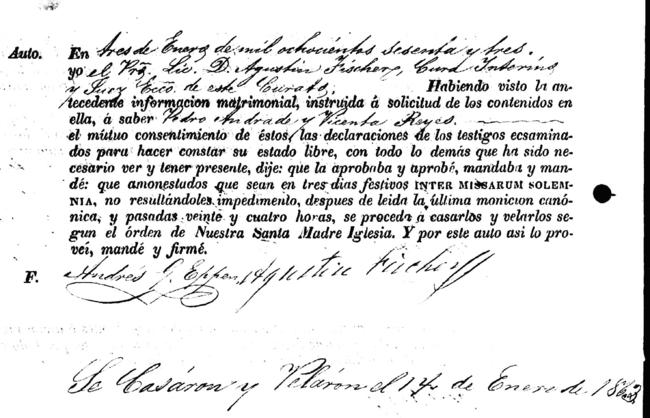 Auto. En tres de Enero de mil ochocientos sesenta y tres.
yo el Pro. Lic. D. Agustin Fischer, Cura Interino
y Juez Ecco. de este Curato; Habiendo visto la an-
tecedente informacion matrimonial, instruida á solicitud de los contenidos en
ella, á saber Pedro Andrade y Vicenta Reyes.
el mútuo consentimiento de éstos, las declaraciones de los testigos ecsaminados
para hacer constar su estado libre, con todo lo demás que ha sido ne-
cesario ver y tener presente, dije: que la aprobaba y aprobé, mandaba y man-
dé: que amonestados que sean en tres dias festivos INTER MISSARUM SOLEM-
NIA, no resultándoles impedimento, despues de leida la última monicion canó-
nica, y pasadas veinte y cuatro horas, se proceda á casarlos y velarlos se-
gun el órden de Nuestra Santa Madre Iglesia. Y por este auto asi lo pro-
veí, mandé y firmé.
F. Andres G. Eppen Agustin Fischer
Se Casáron y Veláron el 17 de Enero de